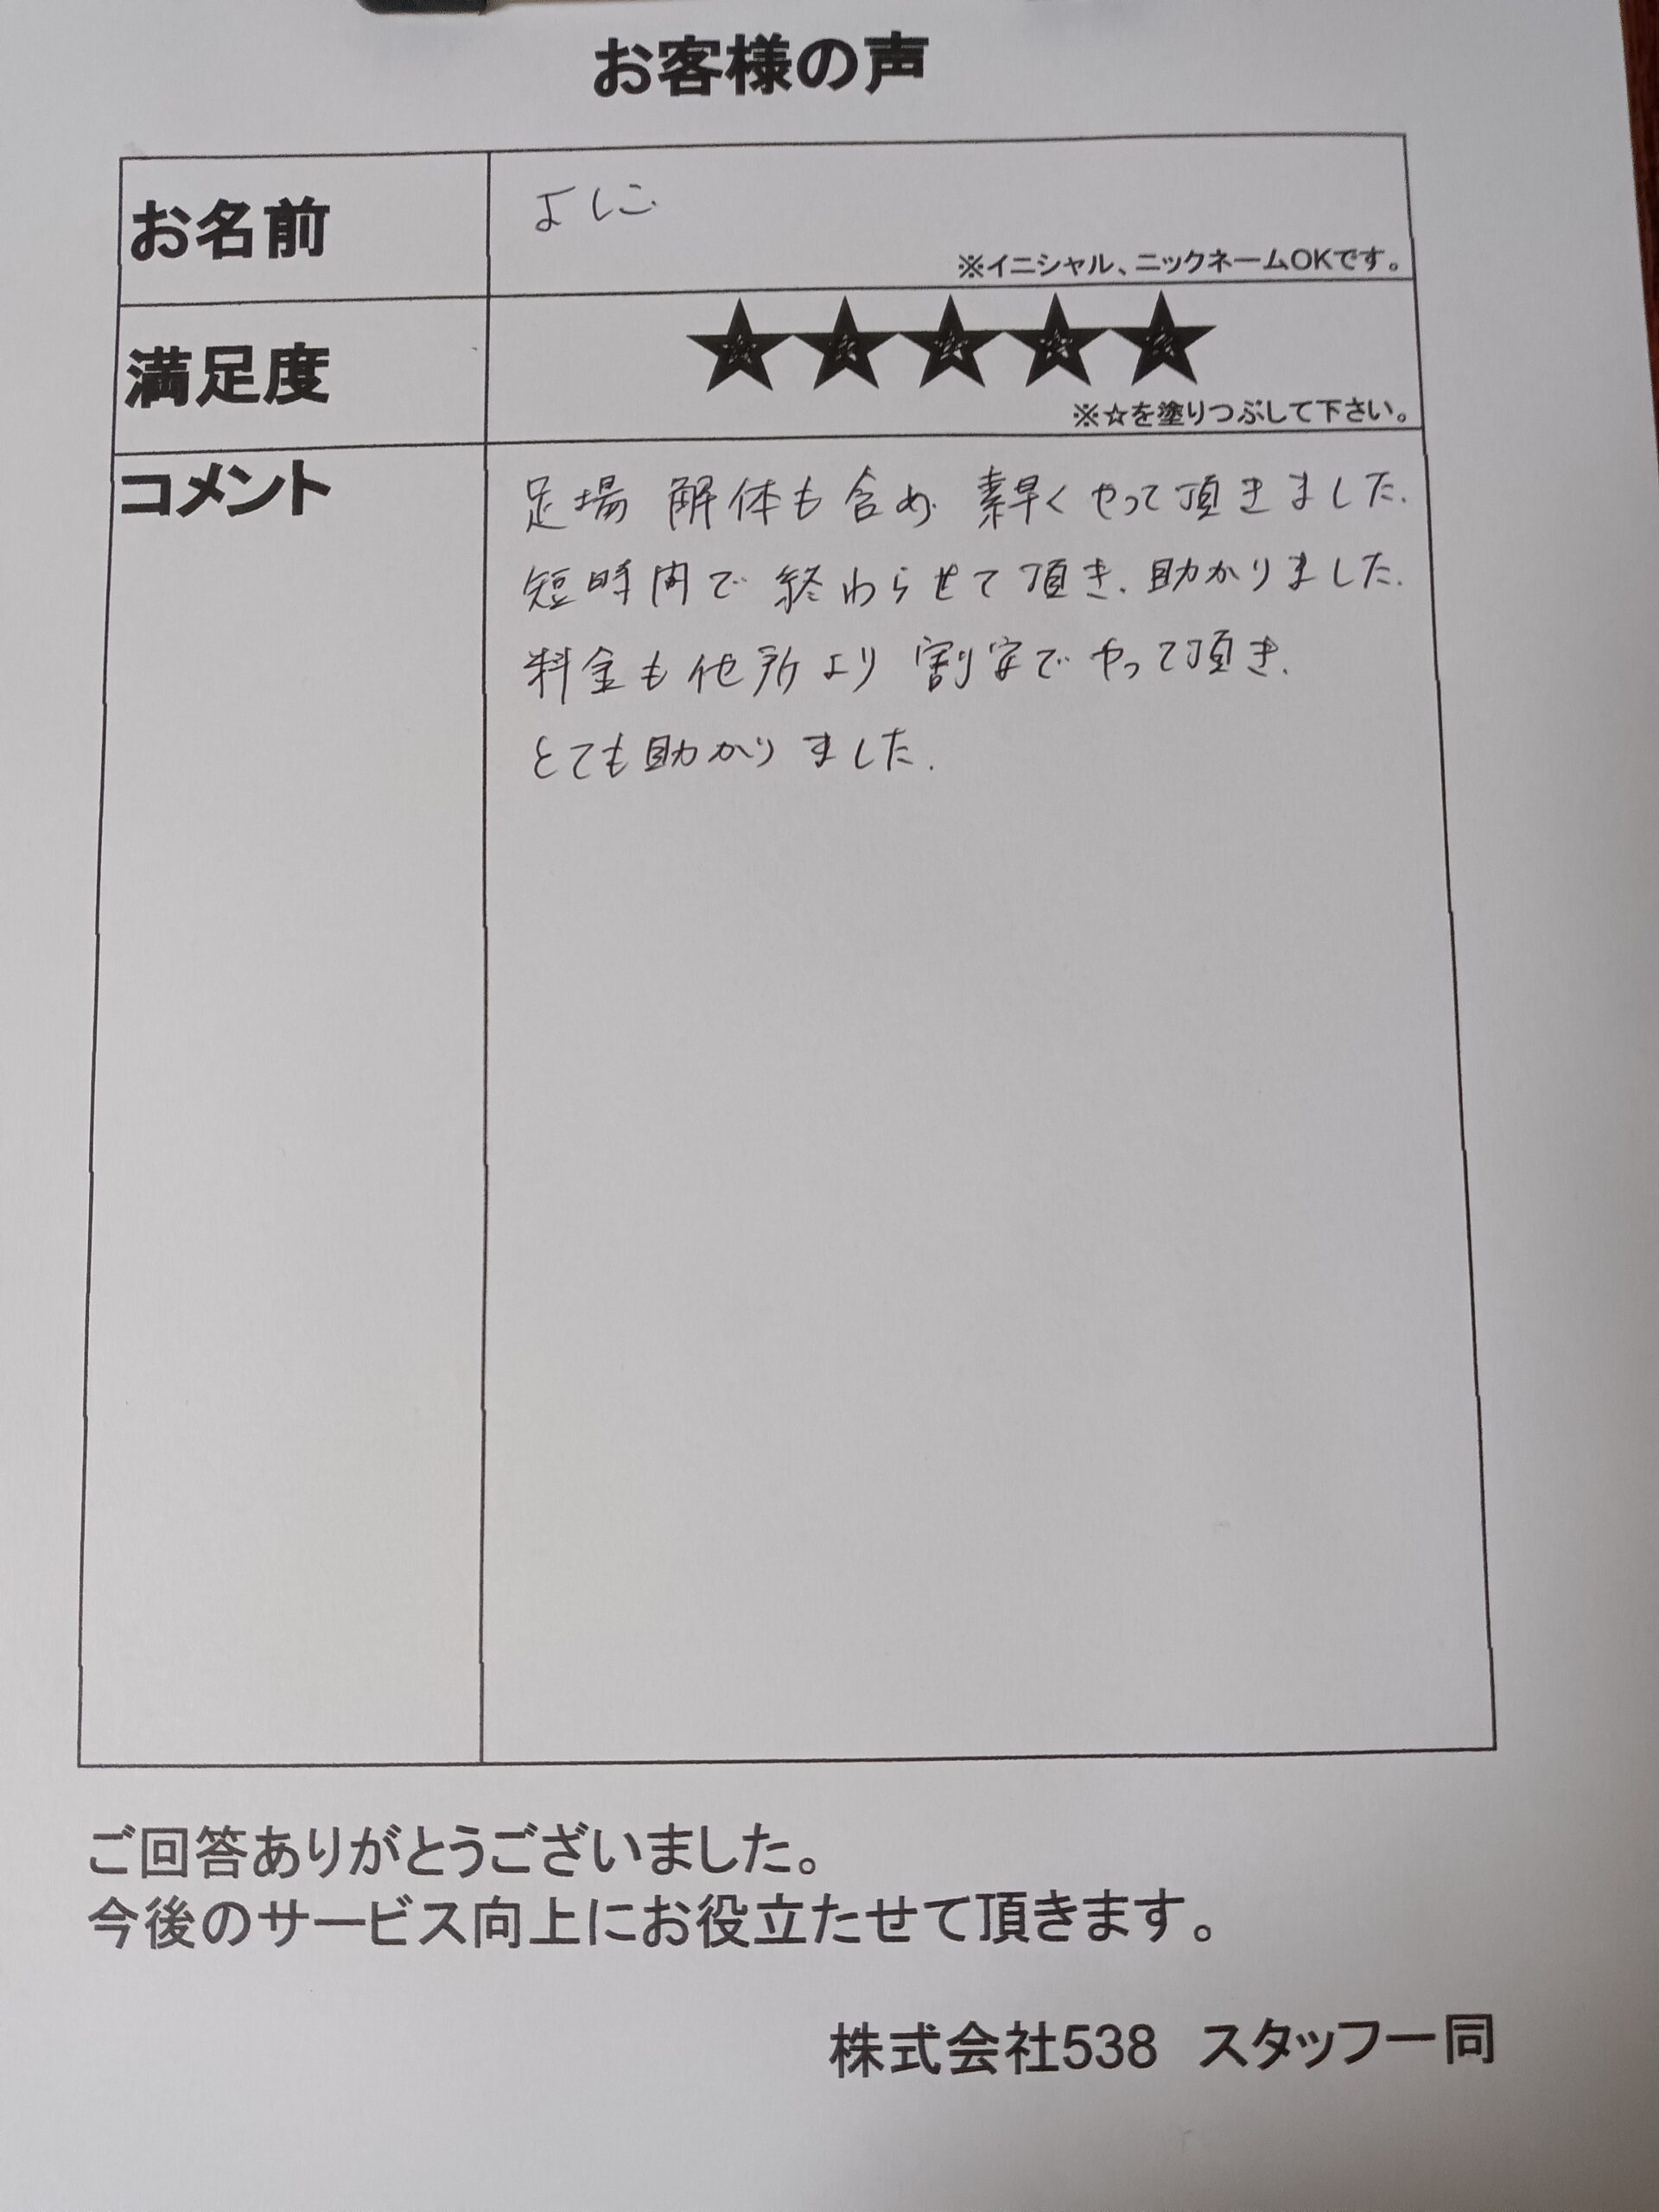 お客様の声
お名前
よしこ
※イニシャル、ニックネームOKです。
満足度
★★★★★
※☆を塗りつぶして下さい。
コメント
足場 解体も含め 素早くやって頂きました.
短時間で 終わらせて頂き、助かりました.
料金も他所より 割安でやって頂き、
とても助かりました.
ご回答ありがとうございました。
今後のサービス向上にお役立たせて頂きます。
株式会社538 スタッフ一同